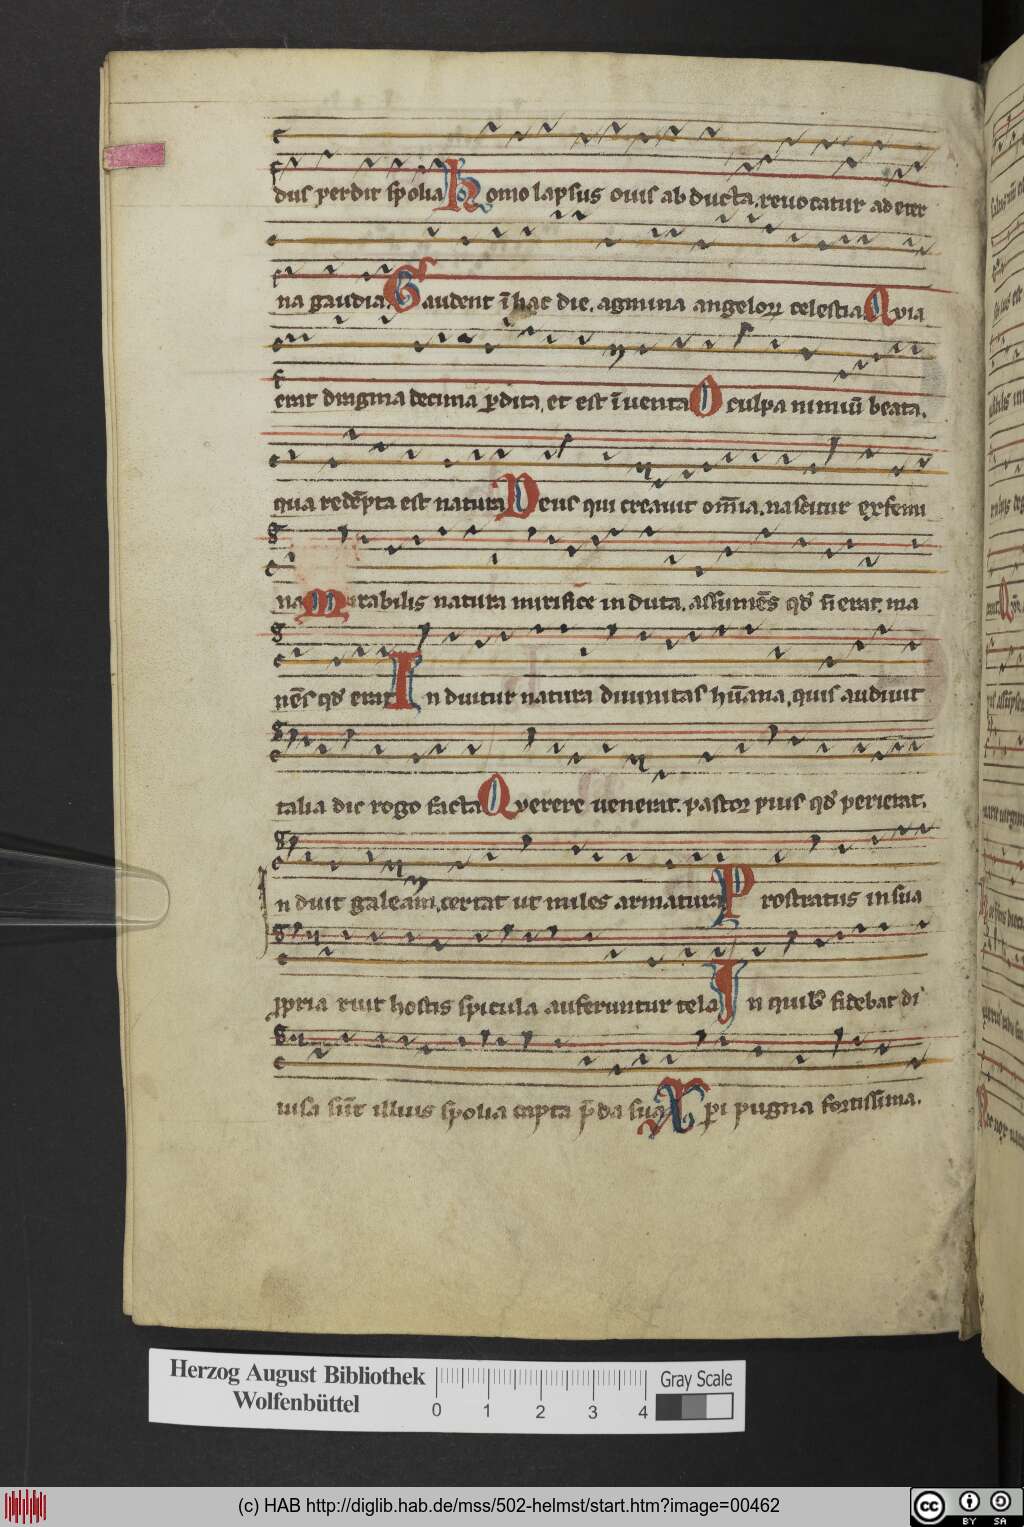 dus perdit spolia Homo lapsus ovis abducta, revocatur ad eter
na gaudia. Gaudent ī hac die. agmina angeloꝝ celestia. Qvia
erat dragma decima ꝑdita, et est īventa O culpa nimiū beata,
qua redēpta est natura Deus qui creavit om̄ia, nascitur ex femi
na Mirabilis natura mirifice induta, assumēs qd̓ n̄ erat, ma
nēs qd̓ erat Induitur natura divinitas hūana, quis audivit
talia dic rogo facta Qverere venerat. pastor pius qd̓ perierat.
nduit galeam, certat ut miles armatura Prostratus in sua
propria ruit hostis spicula auferuntur tela In quib; fidebat di
visa sūt illius spolia capta p̄da sua Xpi pugna fortissima.
Herzog August Bibliothek
Wolfenbüttel
0 1 2 3 4
Gray Scale
(c) HAB http://diglib.hab.de/mss/502-helmst/start.htm?image=00462
cc BY SA